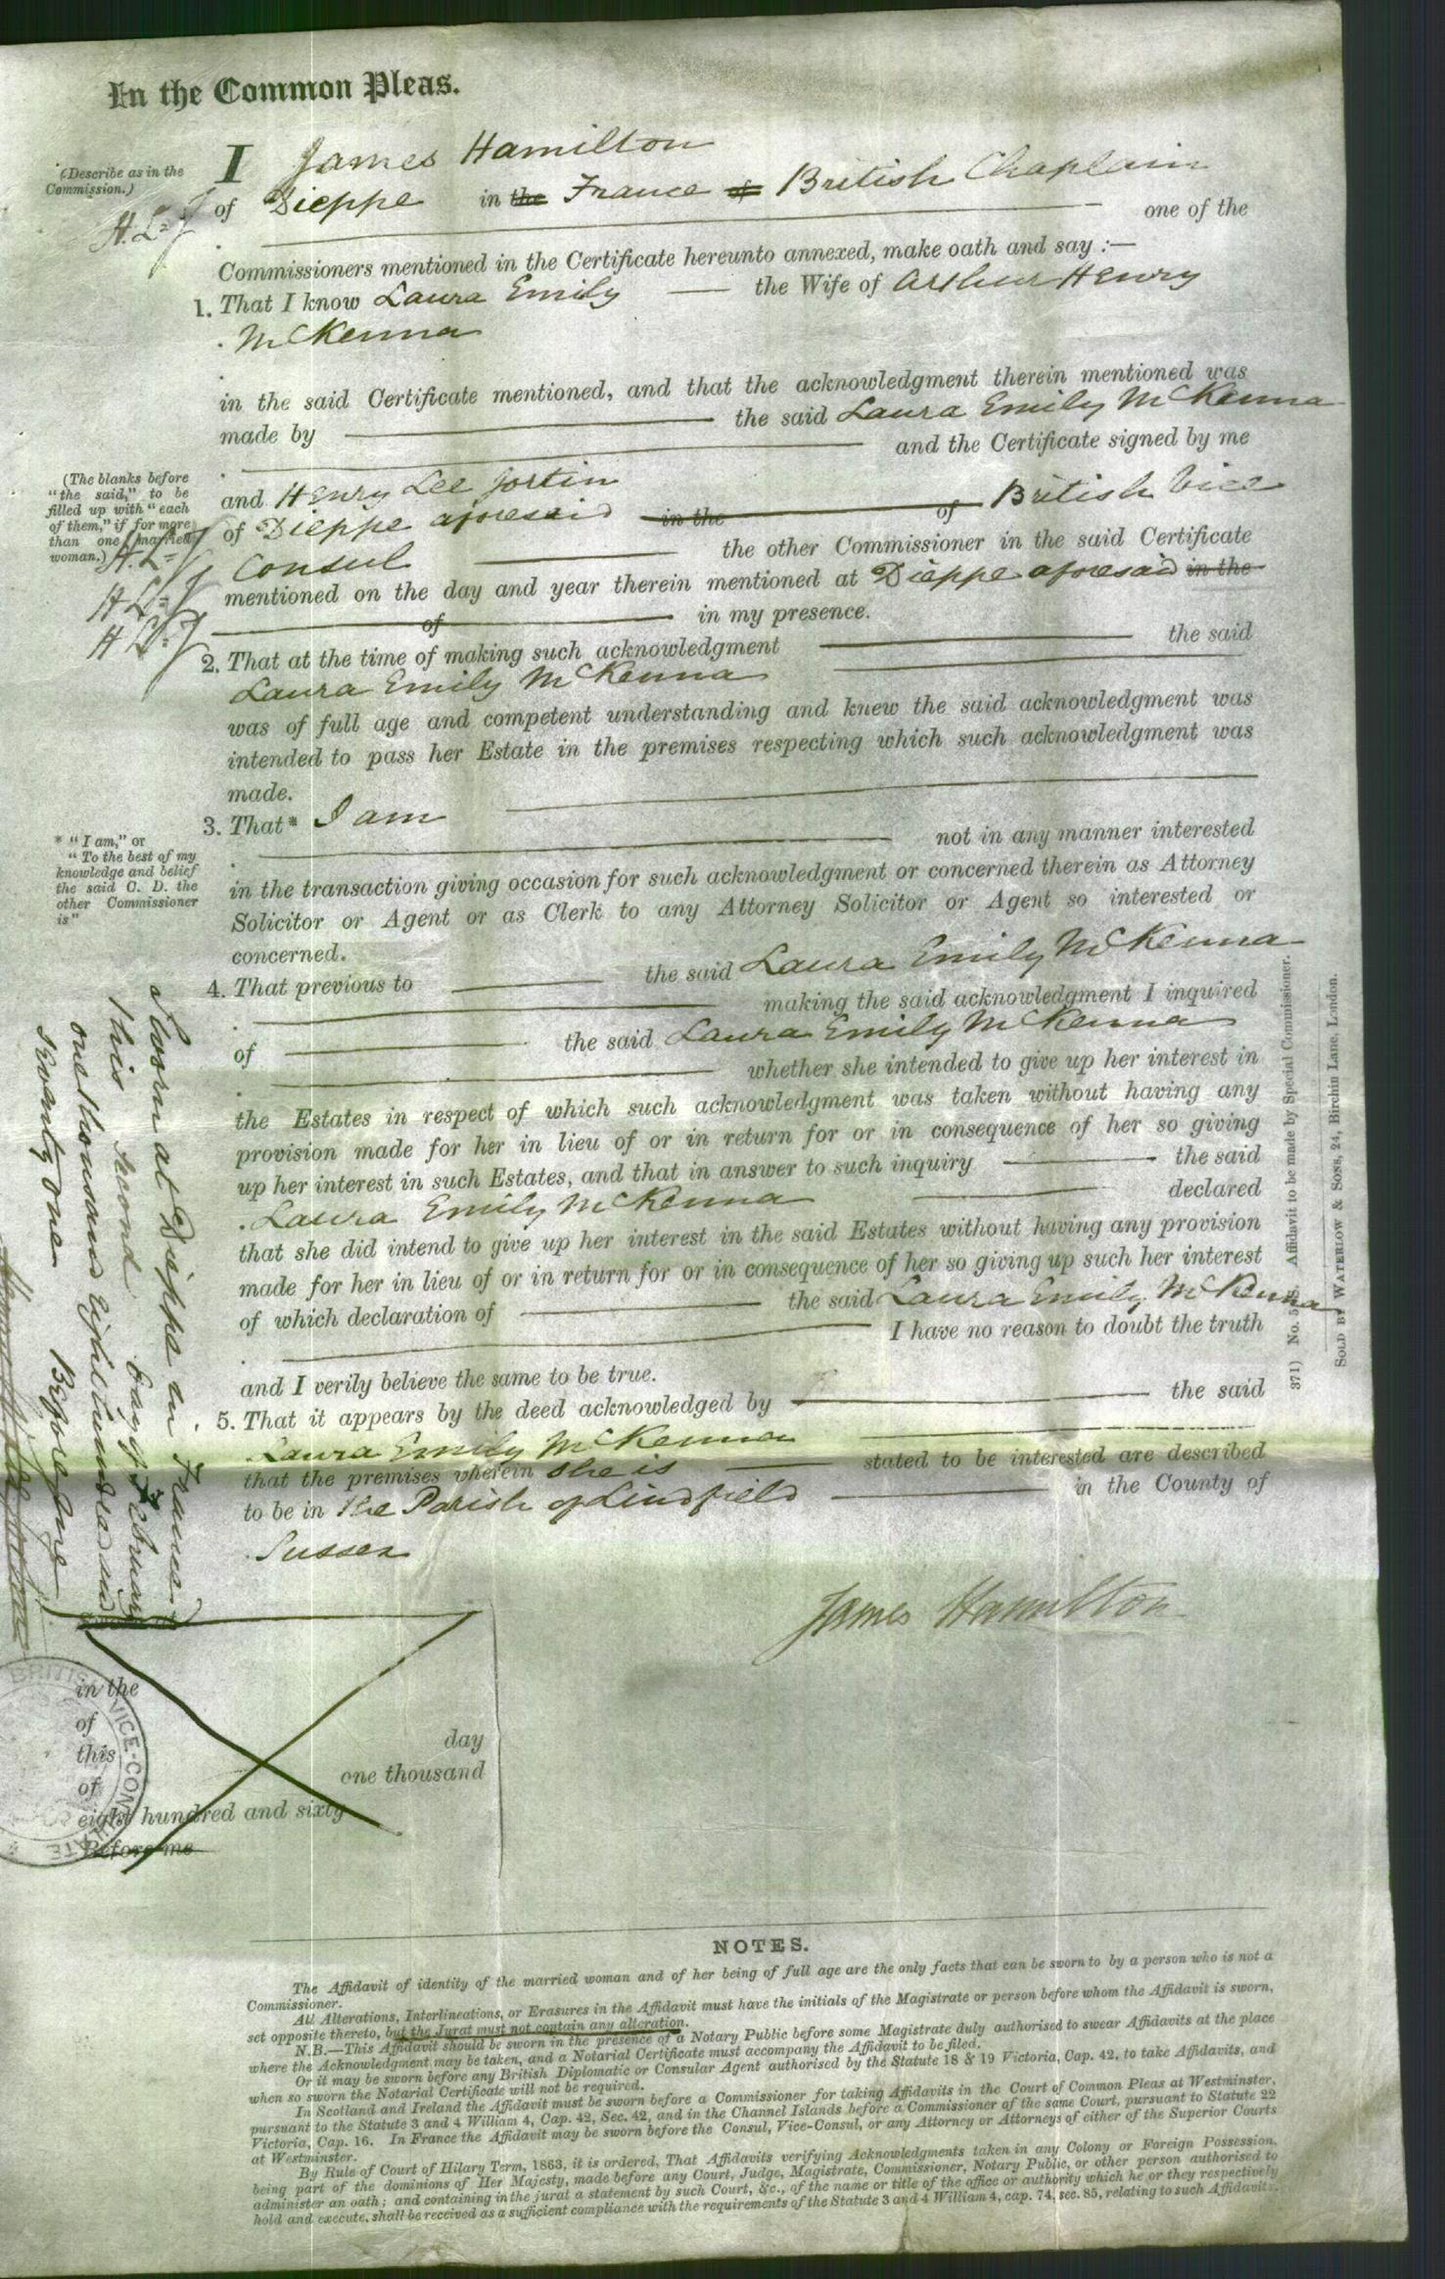 In the Common Pleas.
(Describe as in the
Commission.)
I James Hamilton
of Dieppe in the France of British Chaplain
H.L=J
one of the
Commissioners mentioned in the Certificate hereunto annexed, make oath and say :—
1. That I know Laura Emily — the Wife of Arthur Henry
McKenna
in the said Certificate mentioned, and that the acknowledgment therein mentioned was
made by the said Laura Emily McKenna
and the Certificate signed by me
(The blanks before
"the said," to be
filled up with "each
of them," if for more
than one married
woman.)
H.L=J
H L=J
H L=J
and Henry Lee Jortin
of Dieppe aforesaid in the of British Vice
Consul the other Commissioner in the said Certificate
mentioned on the day and year therein mentioned at Dieppe aforesaid in the
of in my presence.
2. That at the time of making such acknowledgment the said
Laura Emily McKenna
was of full age and competent understanding and knew the said acknowledgment was
intended to pass her Estate in the premises respecting which such acknowledgment was
made.
3. That* I am
not in any manner interested
* "I am," or
"To the best of my
knowledge and belief
the said C. D. the
other Commissioner
is"
in the transaction giving occasion for such acknowledgment or concerned therein as Attorney
Solicitor or Agent or as Clerk to any Attorney Solicitor or Agent so interested or
concerned.
4. That previous to the said Laura Emily McKenna
making the said acknowledgment I inquired
of the said Laura Emily McKenna
whether she intended to give up her interest in
the Estates in respect of which such acknowledgment was taken without having any
provision made for her in lieu of or in return for or in consequence of her so giving
up her interest in such Estates, and that in answer to such inquiry the said
Laura Emily McKenna declared
that she did intend to give up her interest in the said Estates without having any provision
made for her in lieu of or in return for or in consequence of her so giving up such her interest
of which declaration of the said Laura Emily McKenna
I have no reason to doubt the truth
and I verily believe the same to be true.
5. That it appears by the deed acknowledged by the said
Laura Emily McKenna
that the premises wherein she is stated to be interested are described
to be in the Parish of Lindfield in the County of
Sussex
James Hamilton
Sworn at Dieppe in France
this second day of February
one thousand eight hundred and
seventy one Before me
in the
of
this day
of one thousand
eight hundred and sixty
Before me
BRITISH VICE-CONSULATE
371) No. Affidavit to be made by Special Commissioner.
SOLD BY WATERLOW & SONS, 24, Birchin Lane, London.
NOTES.
The Affidavit of identity of the married woman and of her being of full age are the only facts that can be sworn to by a person who is not a
Commissioner.
All Alterations, Interlineations, or Erasures in the Affidavit must have the initials of the Magistrate or person before whom the Affidavit is sworn,
set opposite thereto, but the Jurat must not contain any alteration.
N.B.—This Affidavit should be sworn in the presence of a Notary Public before some Magistrate duly authorised to swear Affidavits at the place
where the Acknowledgment may be taken, and a Notarial Certificate must accompany the Affidavit to be filed.
Or it may be sworn before any British Diplomatic or Consular Agent authorised by the Statute 18 & 19 Victoria, Cap. 42, to take Affidavits, and
when so sworn the Notarial Certificate will not be required.
In Scotland and Ireland the Affidavit must be sworn before a Commissioner for taking Affidavits in the Court of Common Pleas at Westminster,
pursuant to the Statute 3 and 4 William 4, Cap. 42, Sec. 42, and in the Channel Islands before a Commissioner of the same Court, pursuant to Statute 22
Victoria, Cap. 16. In France the Affidavit may be sworn before the Consul, Vice-Consul, or any Attorney or Attorneys of either of the Superior Courts
at Westminster.
By Rule of Court of Hilary Term, 1863, it is ordered, That Affidavits verifying Acknowledgments taken in any Colony or Foreign Possession,
being part of the dominions of Her Majesty, made before any Court, Judge, Magistrate, Commissioner, Notary Public, or other person authorised to
administer an oath; and containing in the jurat a statement by such Court, &c., of the name or title of the office or authority which he or they respectively
hold and execute, shall be received as a sufficient compliance with the requirements of the Statute 3 and 4 William 4, cap. 74, sec. 85, relating to such Affidavits.